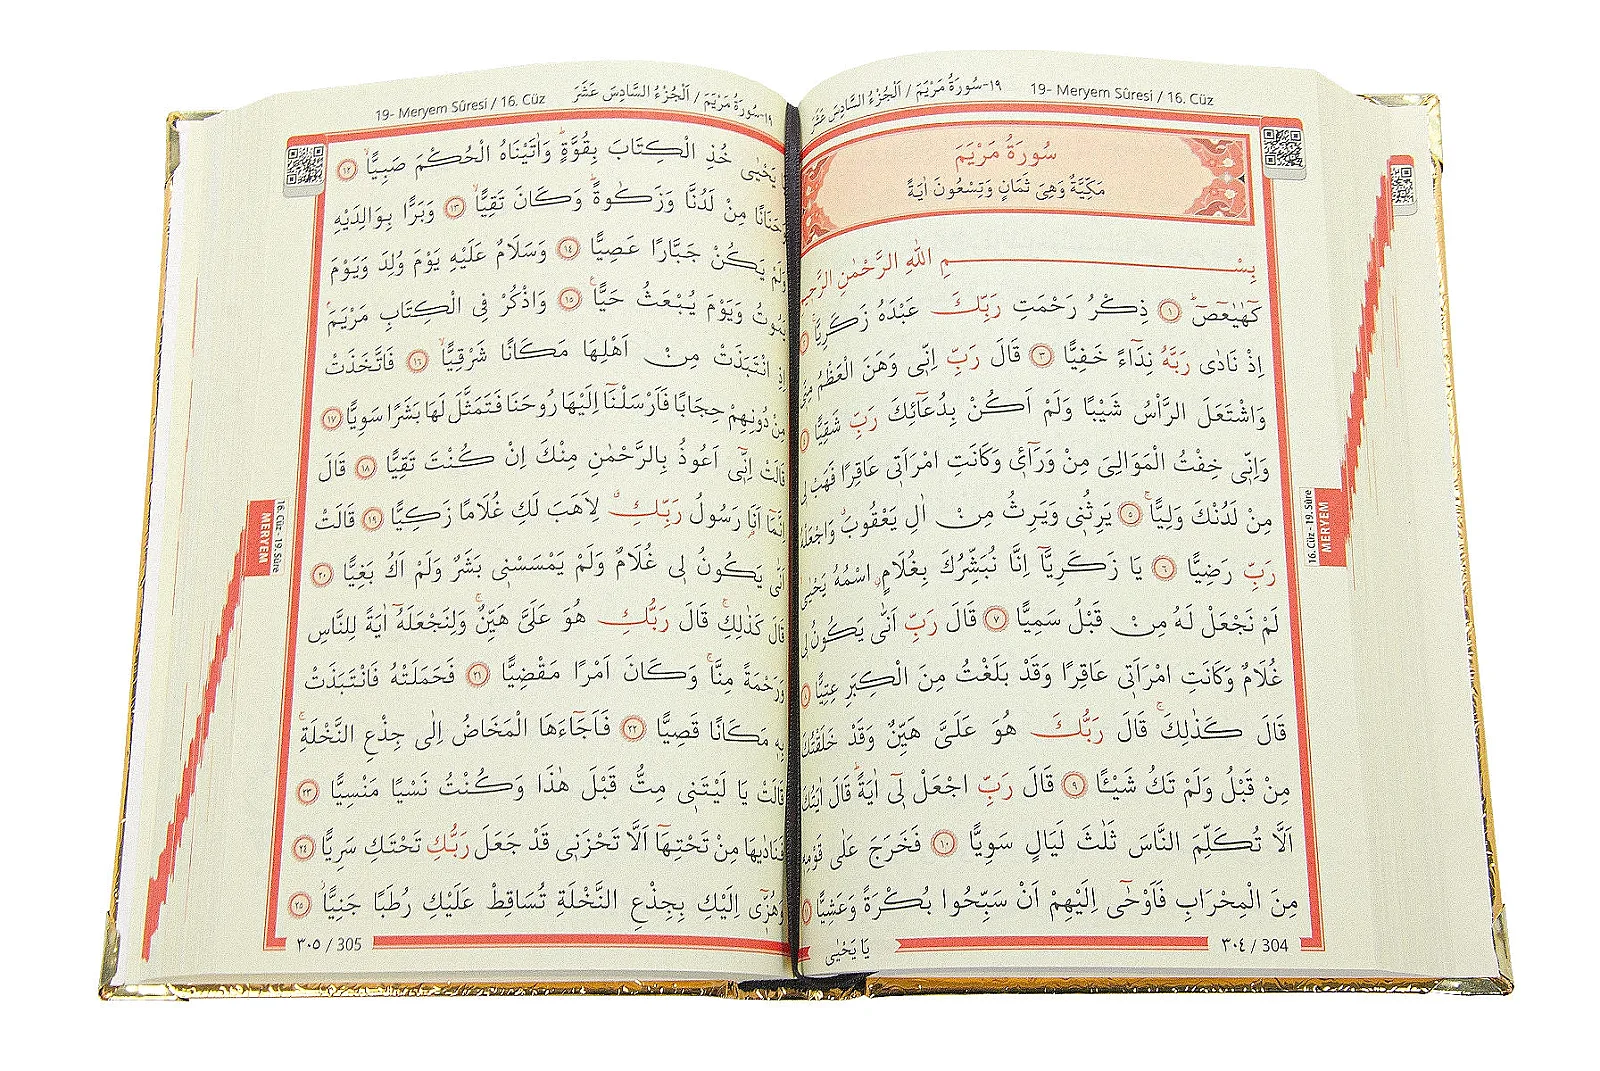 ١٩-سُورَةُ مَرْيَمَ / اَلْجُزْءُ السَّادِسَ عَشَرَ 19- Meryem Sûresi / 16. Cüz
سُورَةُ مَرْيَمَ
مَكِّيَّةٌ وَهِىَ ثَمَانٍ وَتِسْعُونَ اٰيَةً
بِسْــــــمِ اللّٰهِ الرَّحْمٰنِ الرَّحِيمِ
كٓهٰيٰعٓصٓ ۚ ١ ذِكْرُ رَحْمَتِ رَبِّكَ عَبْدَهُ زَكَرِيَّا ۚ ٢
اِذْ نَادٰى رَبَّهُ نِدَٓاءً خَفِيًّا ٣ قَالَ رَبِّ اِنّ۪ى وَهَنَ الْعَظْمُ مِنّ۪ى
وَاشْتَعَلَ الرَّأْسُ شَيْبًا وَلَمْ اَكُنْ بِدُعَٓائِكَ رَبِّ شَقِيًّا ٤
وَاِنّ۪ى خِفْتُ الْمَوَالِىَ مِنْ وَرَٓاء۪ى وَكَانَتِ امْرَاَت۪ى عَاقِرًا فَهَبْ ل۪ى
مِنْ لَدُنْكَ وَلِيًّا ۙ ٥ يَرِثُن۪ى وَيَرِثُ مِنْ اٰلِ يَعْقُوبَ وَاجْعَلْهُ
رَبِّ رَضِيًّا ٦ يَا زَكَرِيَّٓا اِنَّا نُبَشِّرُكَ بِغُلَامٍ ۨاسْمُهُ يَحْيٰى
لَمْ نَجْعَلْ لَهُ مِنْ قَبْلُ سَمِيًّا ٧ قَالَ رَبِّ اَنّٰى يَكُونُ ل۪ى
غُلَامٌ وَكَانَتِ امْرَاَت۪ى عَاقِرًا وَقَدْ بَلَغْتُ مِنَ الْكِبَرِ عِتِيًّا ٨
قَالَ كَذٰلِكَ ۚ قَالَ رَبُّكَ هُوَ عَلَىَّ هَيِّنٌ وَقَدْ خَلَقْتُكَ
مِنْ قَبْلُ وَلَمْ تَكُ شَيْـًٔا ٩ قَالَ رَبِّ اجْعَلْ ل۪ٓى اٰيَةً ۜ قَالَ اٰيَتُكَ
اَلَّا تُكَلِّمَ النَّاسَ ثَلٰثَ لَيَالٍ سَوِيًّا ١٠ فَخَرَجَ عَلٰى قَوْمِهِ
مِنَ الْمِحْرَابِ فَاَوْحٰٓى اِلَيْهِمْ اَنْ سَبِّحُوا بُكْرَةً وَعَشِيًّا ١١
٣٠٤ / 304
يَا يَحْيٰى
16. Cüz - 19. Sûre
MERYEM
19- Meryem Sûresi / 16. Cüz ١٩-سُورَةُ مَرْيَمَ / اَلْجُزْءُ السَّادِسَ عَشَرَ
يَا يَحْيٰى خُذِ الْكِتَابَ بِقُوَّةٍ ۜ وَاٰتَيْنَاهُ الْحُكْمَ صَبِيًّا ۙ ١٢
وَحَنَانًا مِنْ لَدُنَّا وَزَكٰوةً ۜ وَكَانَ تَقِيًّا ۙ ١٣ وَبَرًّا بِوَالِدَيْهِ
وَلَمْ يَكُنْ جَبَّارًا عَصِيًّا ١٤ وَسَلَامٌ عَلَيْهِ يَوْمَ وُلِدَ وَيَوْمَ
يَمُوتُ وَيَوْمَ يُبْعَثُ حَيًّا ۟ ١٥ وَاذْكُرْ فِى الْكِتَابِ مَرْيَمَ ۢ
اِذِ انْتَبَذَتْ مِنْ اَهْلِهَا مَكَانًا شَرْقِيًّا ۙ ١٦ فَاتَّخَذَتْ
مِنْ دُونِهِمْ حِجَابًا فَاَرْسَلْنَٓا اِلَيْهَا رُوحَنَا فَتَمَثَّلَ لَهَا بَشَرًا سَوِيًّا ١٧
قَالَتْ اِنّ۪ٓى اَعُوذُ بِالرَّحْمٰنِ مِنْكَ اِنْ كُنْتَ تَقِيًّا ١٨ قَالَ
اِنَّمَٓا اَنَا۬ رَسُولُ رَبِّكِ ۗ لِاَهَبَ لَكِ غُلَامًا زَكِيًّا ١٩ قَالَتْ
اَنّٰى يَكُونُ ل۪ى غُلَامٌ وَلَمْ يَمْسَسْن۪ى بَشَرٌ وَلَمْ اَكُ بَغِيًّا ٢٠
قَالَ كَذٰلِكِ ۚ قَالَ رَبُّكِ هُوَ عَلَىَّ هَيِّنٌ ۚ وَلِنَجْعَلَهُٓ اٰيَةً لِلنَّاسِ
وَرَحْمَةً مِنَّا ۚ وَكَانَ اَمْرًا مَقْضِيًّا ٢١ فَحَمَلَتْهُ فَانْتَبَذَتْ
بِه۪ مَكَانًا قَصِيًّا ٢٢ فَاَجَٓاءَهَا الْمَخَاضُ اِلٰى جِذْعِ النَّخْلَةِ ۚ
قَالَتْ يَا لَيْتَن۪ى مِتُّ قَبْلَ هٰذَا وَكُنْتُ نَسْيًا مَنْسِيًّا ٢٣
فَنَادٰيهَا مِنْ تَحْتِهَٓا اَلَّا تَحْزَن۪ى قَدْ جَعَلَ رَبُّكِ تَحْتَكِ سَرِيًّا ٢٤
وَهُزّ۪ٓى اِلَيْكِ بِجِذْعِ النَّخْلَةِ تُسَاقِطْ عَلَيْكِ رُطَبًا جَنِيًّا ۘ ٢٥
٣٠٥ / 305
16. Cüz - 19. Sûre
MERYEM